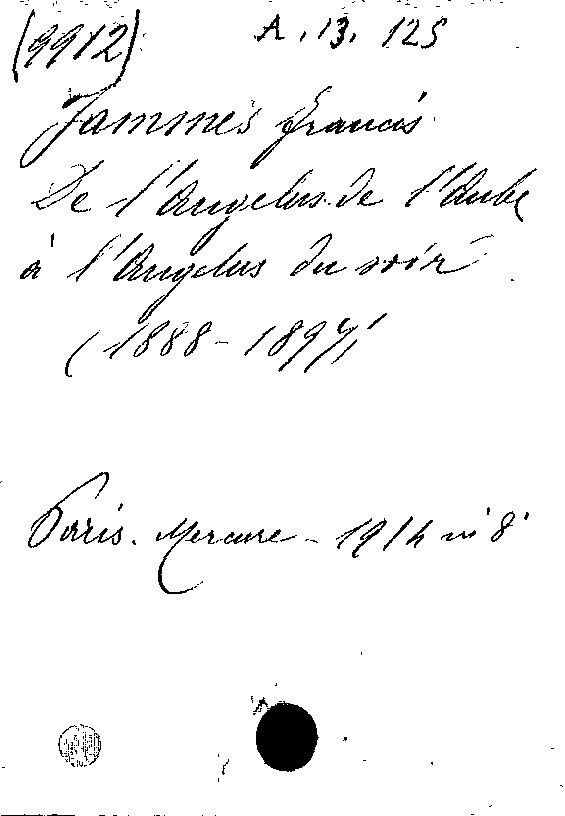 (9912) A. 13. 125
Jammes Francis
De l'Angelus de l'Aube
à l'Angelus du soir
(1888-1897)
Paris. Mercure - 1914 in 8°